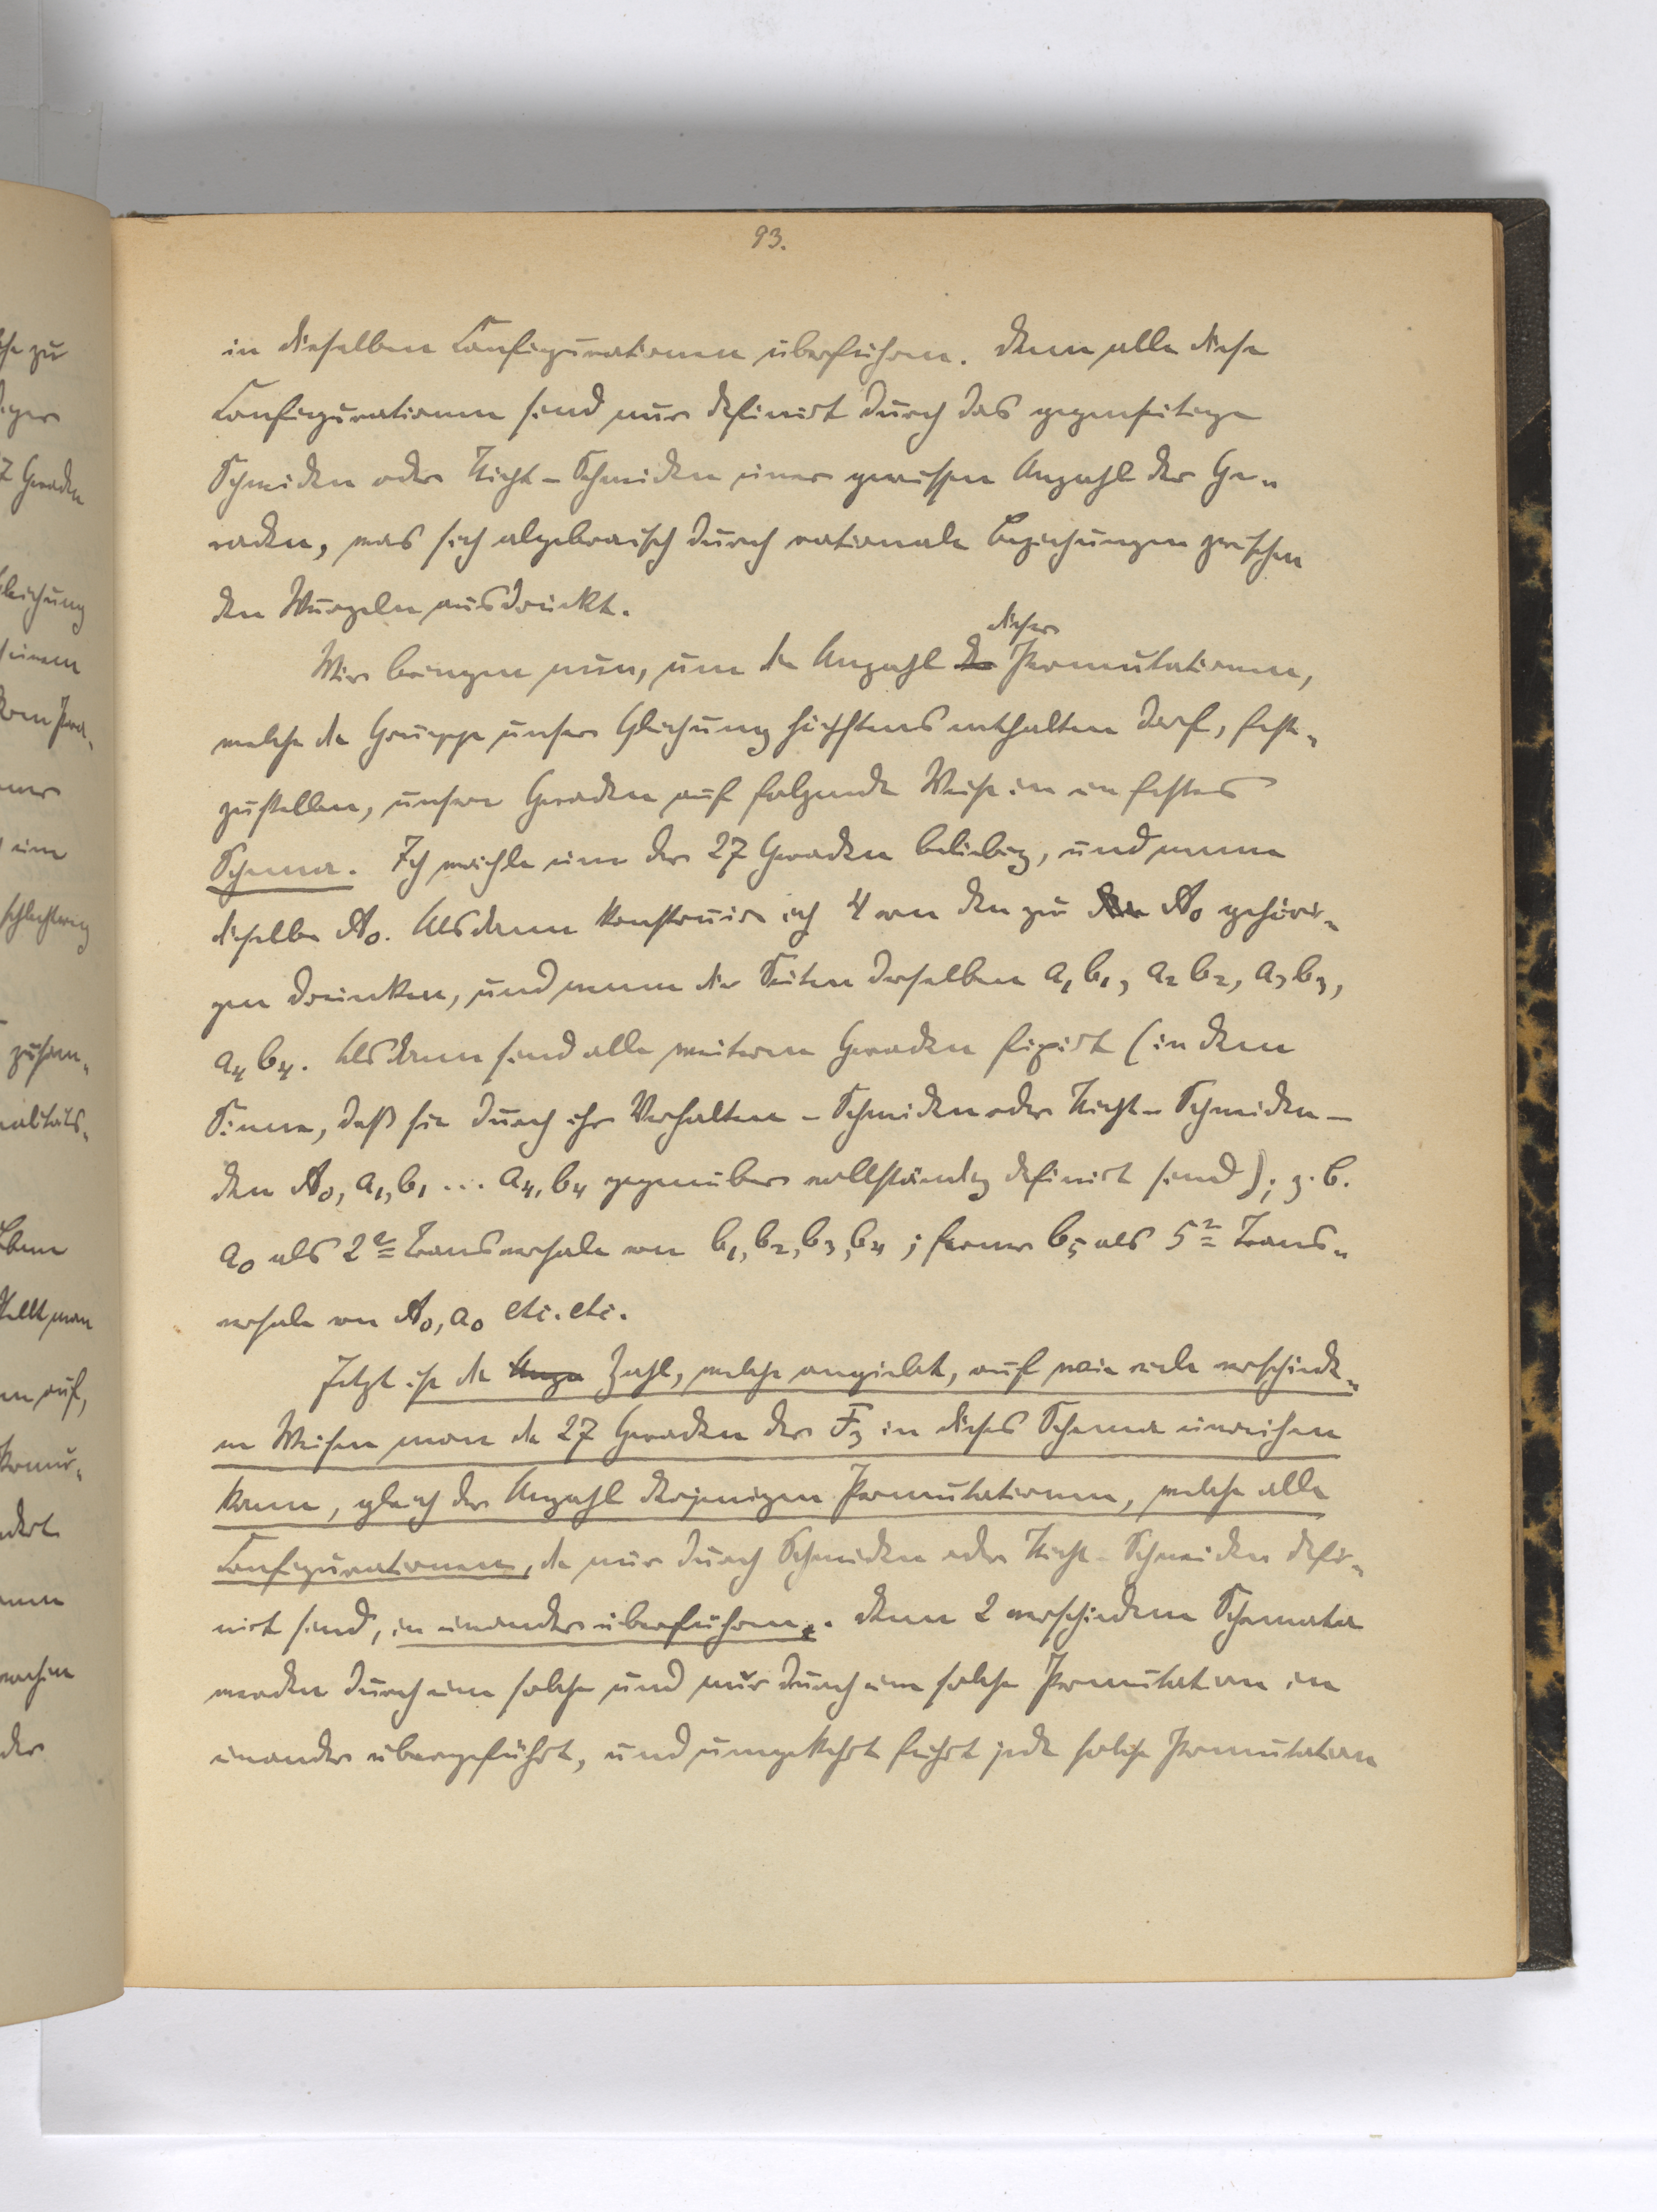 93.
in dieselben Configurationen überführen. Denn alle diese
Configurationen sind nur definirt durch das gegenseitige
Schneiden oder Nicht-Schneiden einer gewissen Anzahl der Ge-
raden, was sich algebraisch durch rationale Beziehungen zwischen
den Wurzeln ausdrückt.
dieser
Wir bringen nun, um die Anzahl der Permutationen,
welche die Gruppe unsrer Gleichung höchstens enthalten darf, fest-
zustellen, unsere Geraden auf folgende Weise in ein festes
Schema. Ich wähle eine der 27 Geraden beliebig, und nenne
dieselbe A₀. Alsdann konstruire ich 4 von den zu A₀ gehöri-
gen Dreiecken, und nenne die Seiten derselben a₁b₁, a₂b₂, a₃b₃,
a₄b₄. Alsdann sind alle weiteren Geraden fixirt (in dem
Sinne, daß sie durch ihr Verhalten - Schneiden oder Nicht-Schneiden -
den A₀, a₁, b₁ ... a₄, b₄ gegenüber vollständig definirt sind); z. B.
a₀ als 2te Transversale von b₁, b₂, b₃, b₄; ferner b₅ als 5te Trans-
versale von A₀, a₀ etc. etc.
Jetzt ist die Anza Zahl, welche angiebt, auf wie viele verschiede-
ne Weisen man die 27 Geraden der F₃ in dieses Schema einreihen
kann, gleich der Anzahl derjenigen Permutationen, welche alle
Configurationen, die nur durch Schneiden oder Nicht-Schneiden defi-
nirt sind, in einander überführen. Denn 2 verschiedene Schemata
werden durch eine solche und nur durch eine solche Permutation in
einander übergeführt, und umgekehrt führt jede solche Permutation